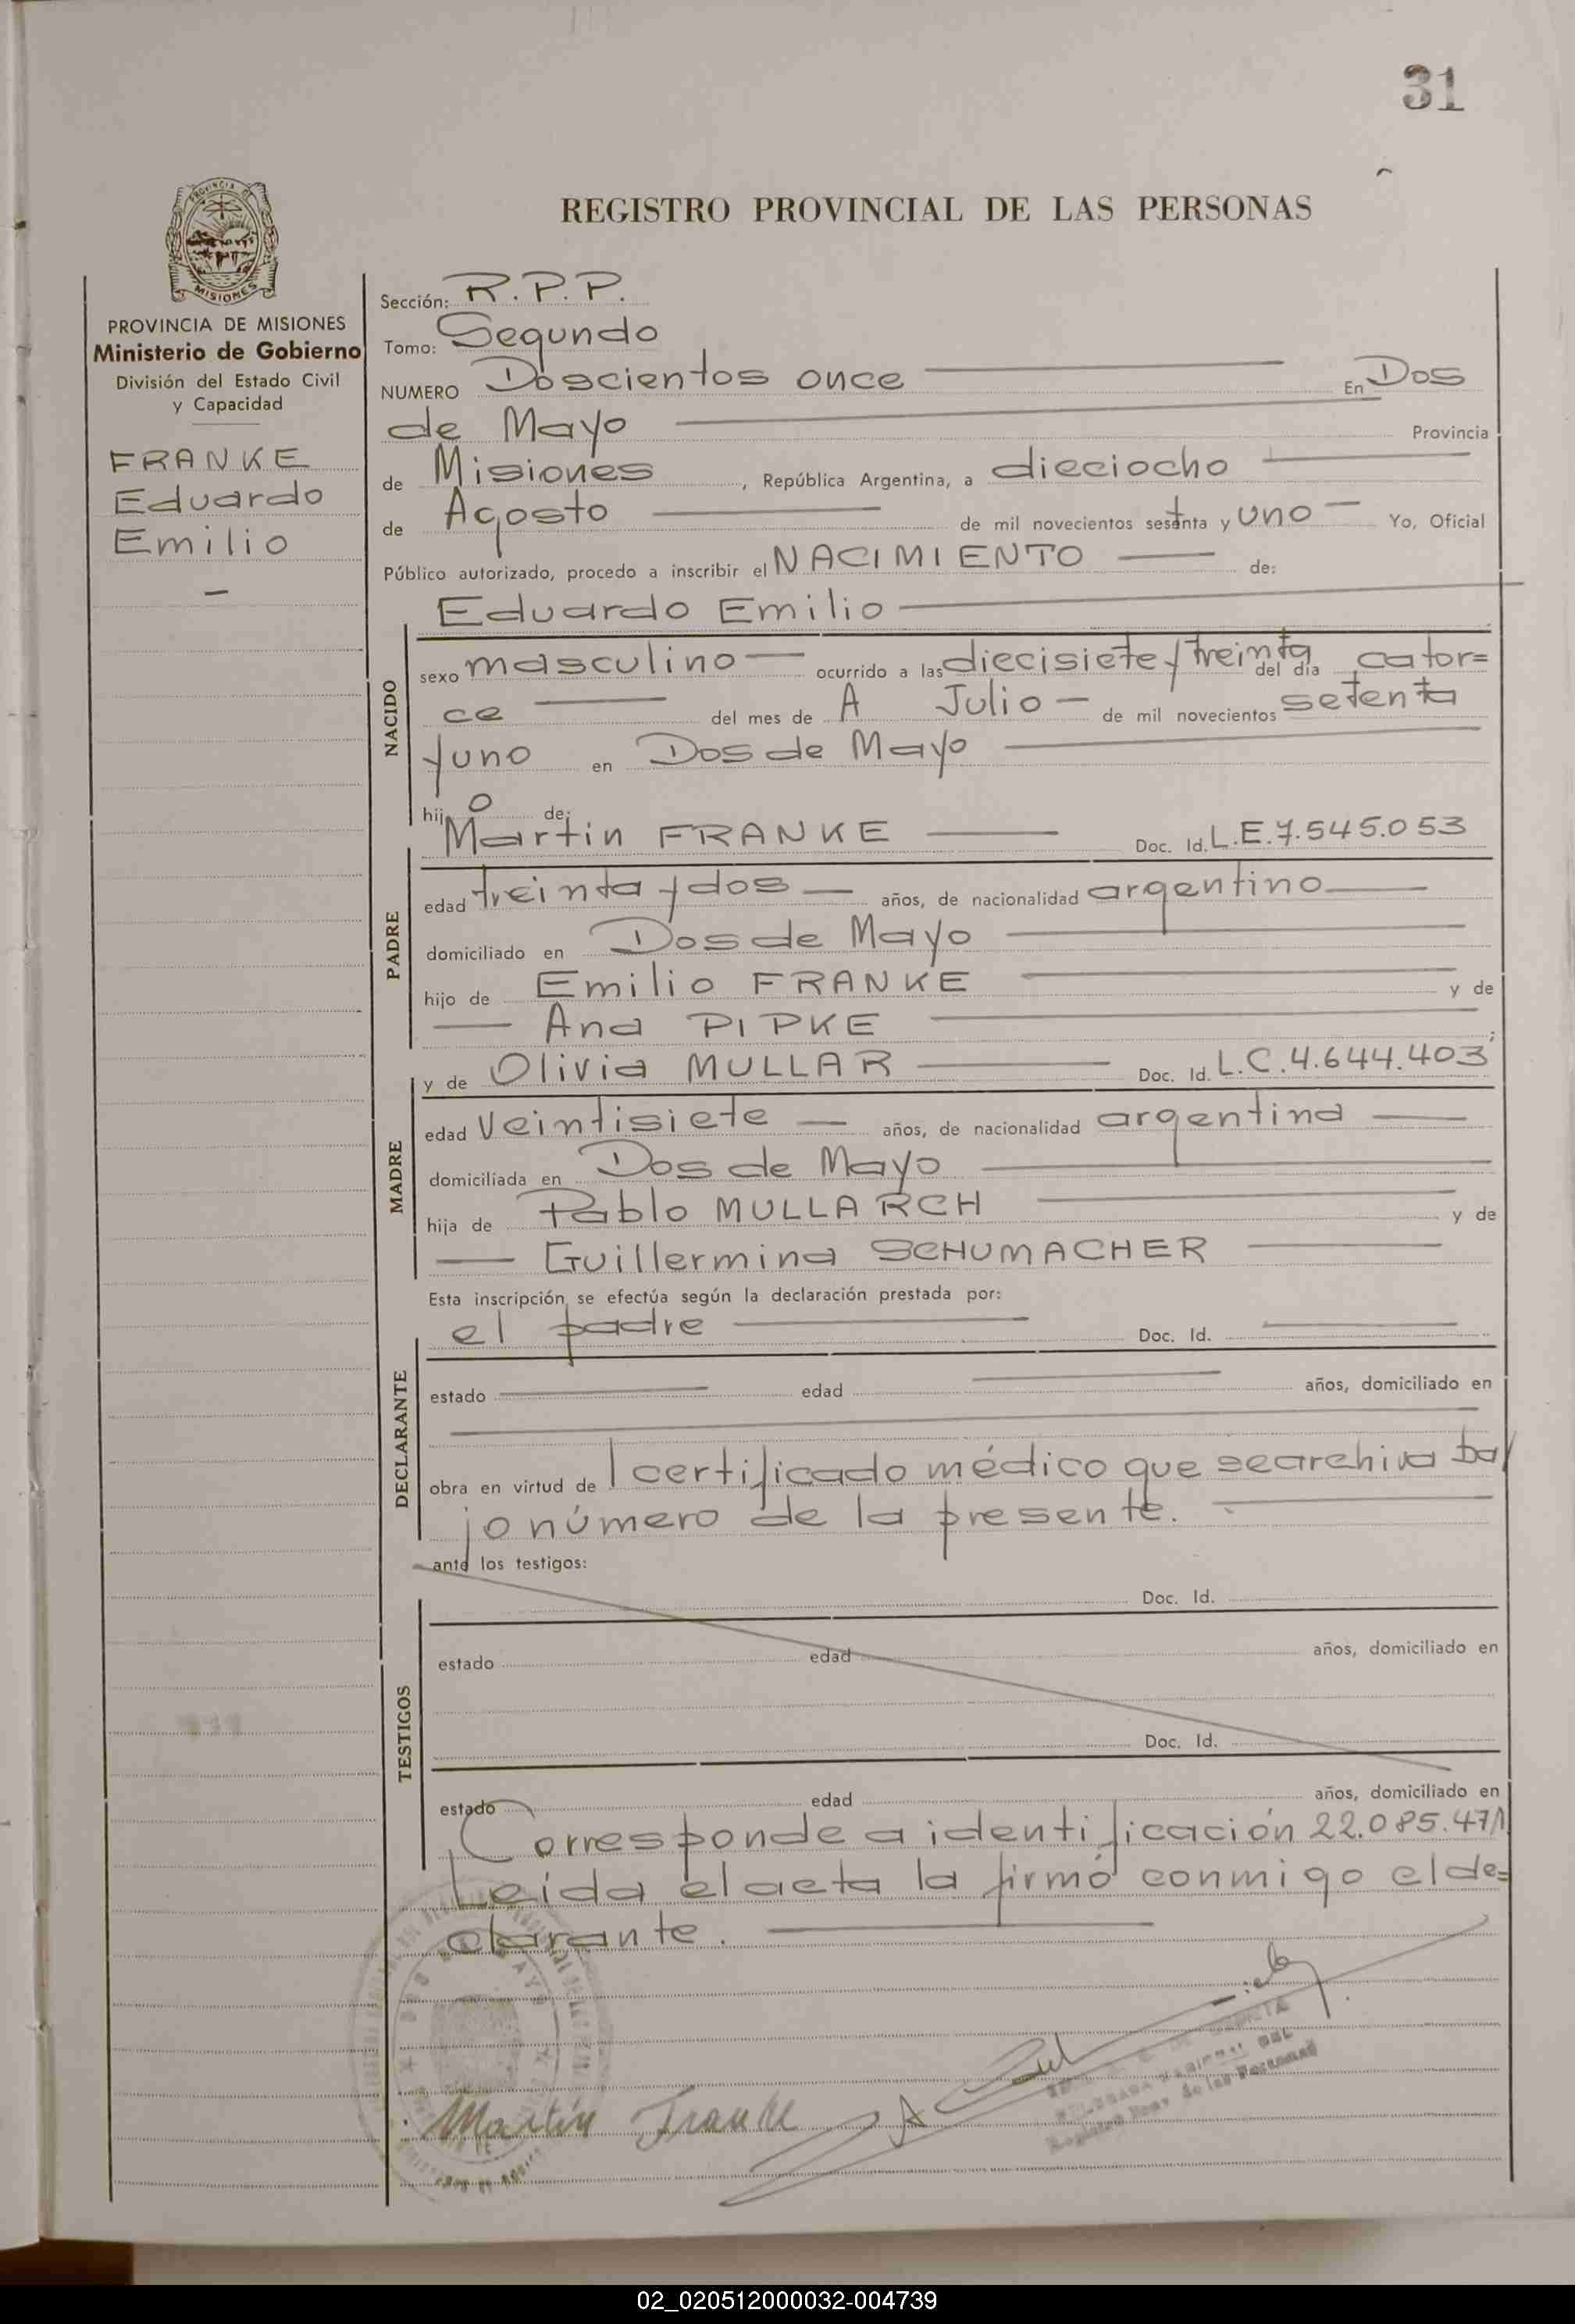 31
REGISTRO PROVINCIAL DE LAS PERSONAS
MISIONES
PROVINCIA DE MISIONES
Ministerio de Gobierno
División del Estado Civil
y Capacidad
FRANKE
Eduardo
Emilio
Sección: R.P.P.
Tomo: Segundo
NUMERO Doscientos once En Dos
de Mayo Provincia
de Misiones, República Argentina, a dieciocho
de Agosto de mil novecientos setenta y uno Yo, Oficial
Público autorizado, procedo a inscribir el NACIMIENTO de:
Eduardo Emilio
NACIDO
sexo masculino ocurrido a las diecisiete y treinta del día cator=
ce del mes de A Julio de mil novecientos setenta
y uno en Dos de Mayo
hijo de:
Martin FRANKE Doc. Id. L.E.7.545.053
PADRE
edad treinta y dos años, de nacionalidad argentino
domiciliado en Dos de Mayo
hijo de Emilio FRANKE y de
Ana PIPKE
y de Olivia MULLAR Doc. Id. L.C.4.644.403
MADRE
edad veintisiete años, de nacionalidad argentina
domiciliada en Dos de Mayo
hija de Pablo MULLARCH y de
Guillermina SCHUMACHER
Esta inscripción se efectúa según la declaración prestada por:
el padre Doc. Id.
DECLARANTE
estado edad años, domiciliado en
obra en virtud de l certificado médico que se archiva ba
jo número de la presente.
ante los testigos:
Doc. Id.
TESTIGOS
estado edad años, domiciliado en
Doc. Id.
estado edad años, domiciliado en
Corresponde a identificación 22.085.471
Leida el acta la firmó conmigo el de=
clarante.
Martín Franke
02_020512000032-004739